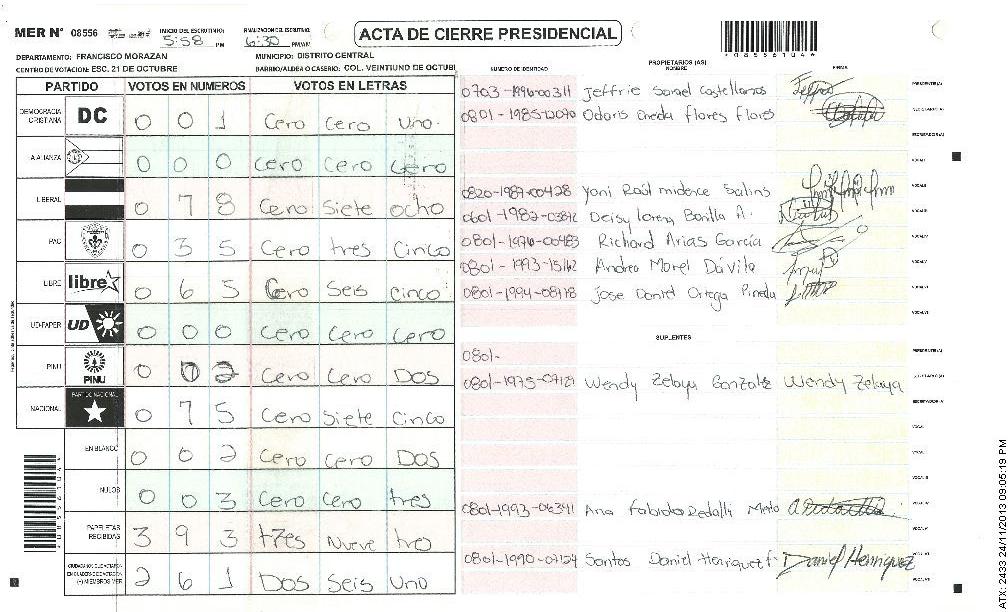 MER N° 08556 INICIO DEL ESCRUTINIO: 5:58 PM FINALIZACION DEL ESCRUTINIO: 6:30 PM/AM
ACTA DE CIERRE PRESIDENCIAL
DEPARTAMENTO: FRANCISCO MORAZAN MUNICIPIO: DISTRITO CENTRAL
CENTRO DE VOTACION: ESC. 21 DE OCTUBRE BARRIO/ALDEA O CASERIO: COL. VEINTIUNO DE OCTUBI
PARTIDO VOTOS EN NUMEROS VOTOS EN LETRAS
DEMOCRACIA CRISTIANA DC 0 0 1 Cero Cero Uno.
ALIANZA 0 0 0 Cero Cero Cero
LIBERAL 0 7 8 Cero Siete ocho
PAC 0 3 5 Cero tres Cinco
LIBRE libre 0 6 5 Cero Seis Cinco
UD-FAPER UD 0 0 0 Cero Cero Cero
PINU PINU 0 0 2 Cero Cero Dos
NACIONAL PARTIDO NACIONAL 0 7 5 Cero Siete Cinco
EN BLANCO 0 0 2 Cero Cero Dos
NULOS 0 0 3 Cero Cero tres
PAPELETAS RECIBIDAS 3 9 3 tres Nueve tre
2 6 1 Dos Seis Uno
NUMERO DE IDENTIDAD PROPIETARIOS (AS) NOMBRE FIRMA
0703-1996-00311 Jeffrie Castellanos PRESIDENTE(A)
0801-1985- Odaris Oneda flores flores SECRETARIO(A)
ESCRUTADOR(A)
VOCAL I
0820-1987-00428 Yoni Raúl midence Salins VOCAL II
0601-1982- Deisy Lorena Bonilla A. VOCAL III
0801-1976-00483 Richard Arias García VOCAL IV
0801-1993- Andrea Morel Dávila VOCAL V
0801-1994- Jose Daniel Ortega Pineda VOCAL VI
VOCAL VII
SUPLENTES
0801- PRESIDENTE(A)
0801-1975-07121 Wendy Zelaya Gonzalez Wendy Zelaya SECRETARIO(A)
ESCRUTADOR(A)
VOCAL I
VOCAL II
VOCAL III
0801-1993-06341 Ana VOCAL IV
VOCAL V
0801-1990-07124 Santos Daniel Henriquez f. Daniel Henriquez VOCAL VI
VOCAL VII
ATX: 2433 24/11/2013 09:05:19 PM